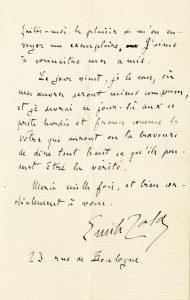 Faites-moi le plaisir de m'en en-
voyer un exemplaire, — J'aime
à connaître mes amis.
Le jour vient, je le sens, où
mes œuvres seront mieux comprises,
et je devrai ce jour-là aux es-
prits hardis et francs comme le
vôtre qui auront eu la bravoure
de dire tout haut ce qu'ils pen-
sent être la vérité.
Merci mille fois, et bien cor-
dialement à vous.
Emile Zola
23 rue de Boulogne.